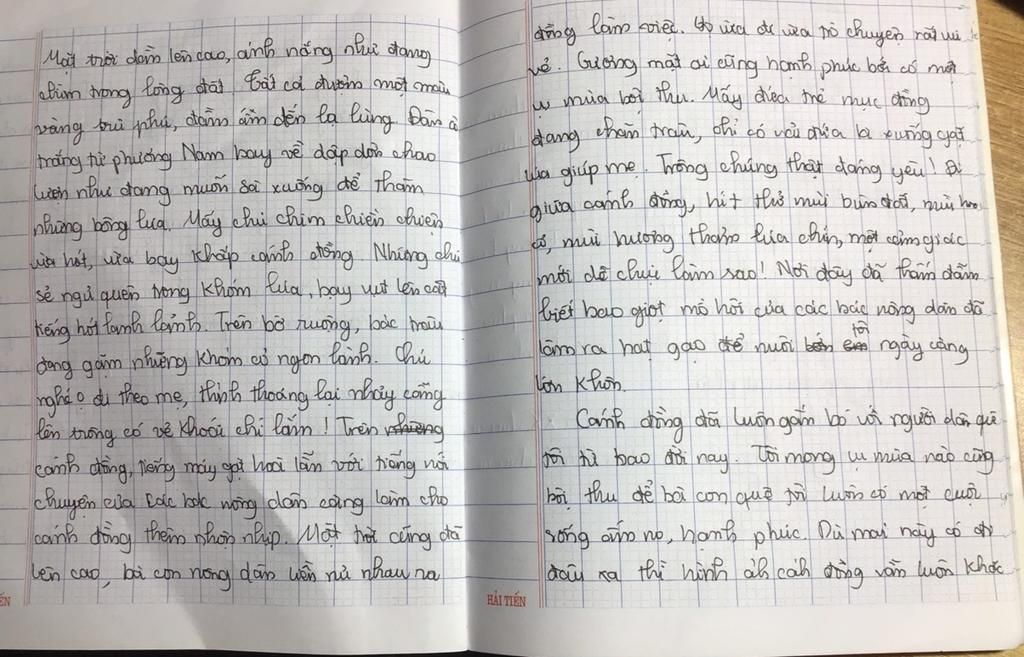 Mặt trời dần lên cao, ánh nắng như đang
chìm trong lòng đất. Tất cả đượm một màu
vàng trù phú, đầm ấm đến lạ lùng. Đàn cò
trắng từ phương Nam bay về dập dờn chao
lượn như đang muốn sà xuống để thăm
những bông lúa. Mấy chú chim chiền chiện
vừa hót, vừa bay khắp cánh đồng. Những chú
sẻ ngủ quên trong khóm lúa, bay vụt lên cất
tiếng hót lanh lảnh. Trên bờ ruộng, bác trâu
đang gặm những khóm cỏ ngon lành. Chú
nghé đi theo mẹ, thỉnh thoảng lại nhảy cẫng
lên trông có vẻ khoái chí lắm! Trên những
cánh đồng, tiếng máy gặt hoà lẫn với tiếng nói
chuyện của các bác nông dân càng làm cho
cánh đồng thêm nhộn nhịp. Mặt trời cũng đã
lên cao, bà con nông dân liền rủ nhau ra
HẢI TIẾN
đồng làm việc. Họ vừa đi vừa trò chuyện rất vui
vẻ. Gương mặt ai cũng hạnh phúc bởi có một
vụ mùa bội thu. Mấy đứa trẻ mục đồng
đang chăn trâu, chỉ có vài đứa là xuống gặt
lúa giúp mẹ. Trông chúng thật đáng yêu! Đi
giữa cánh đồng, hít thở mùi bùn đất, mùi hoa
cỏ, mùi hương thơm lúa chín, một cảm giác
mới dễ chịu làm sao! Nơi đây đã thấm đẫm
biết bao giọt mồ hôi của các bác nông dân đã
làm ra hạt gạo để nuôi tôi ngày càng
lớn khôn.
Cánh đồng đã luôn gắn bó với người dân quê
tôi từ bao đời nay. Tôi mong vụ mùa nào cũng
bội thu để bà con quê tôi luôn có một cuộc
sống ấm no, hạnh phúc. Dù mai này có đi
đâu xa thì hình ảnh cánh đồng vẫn luôn khắc